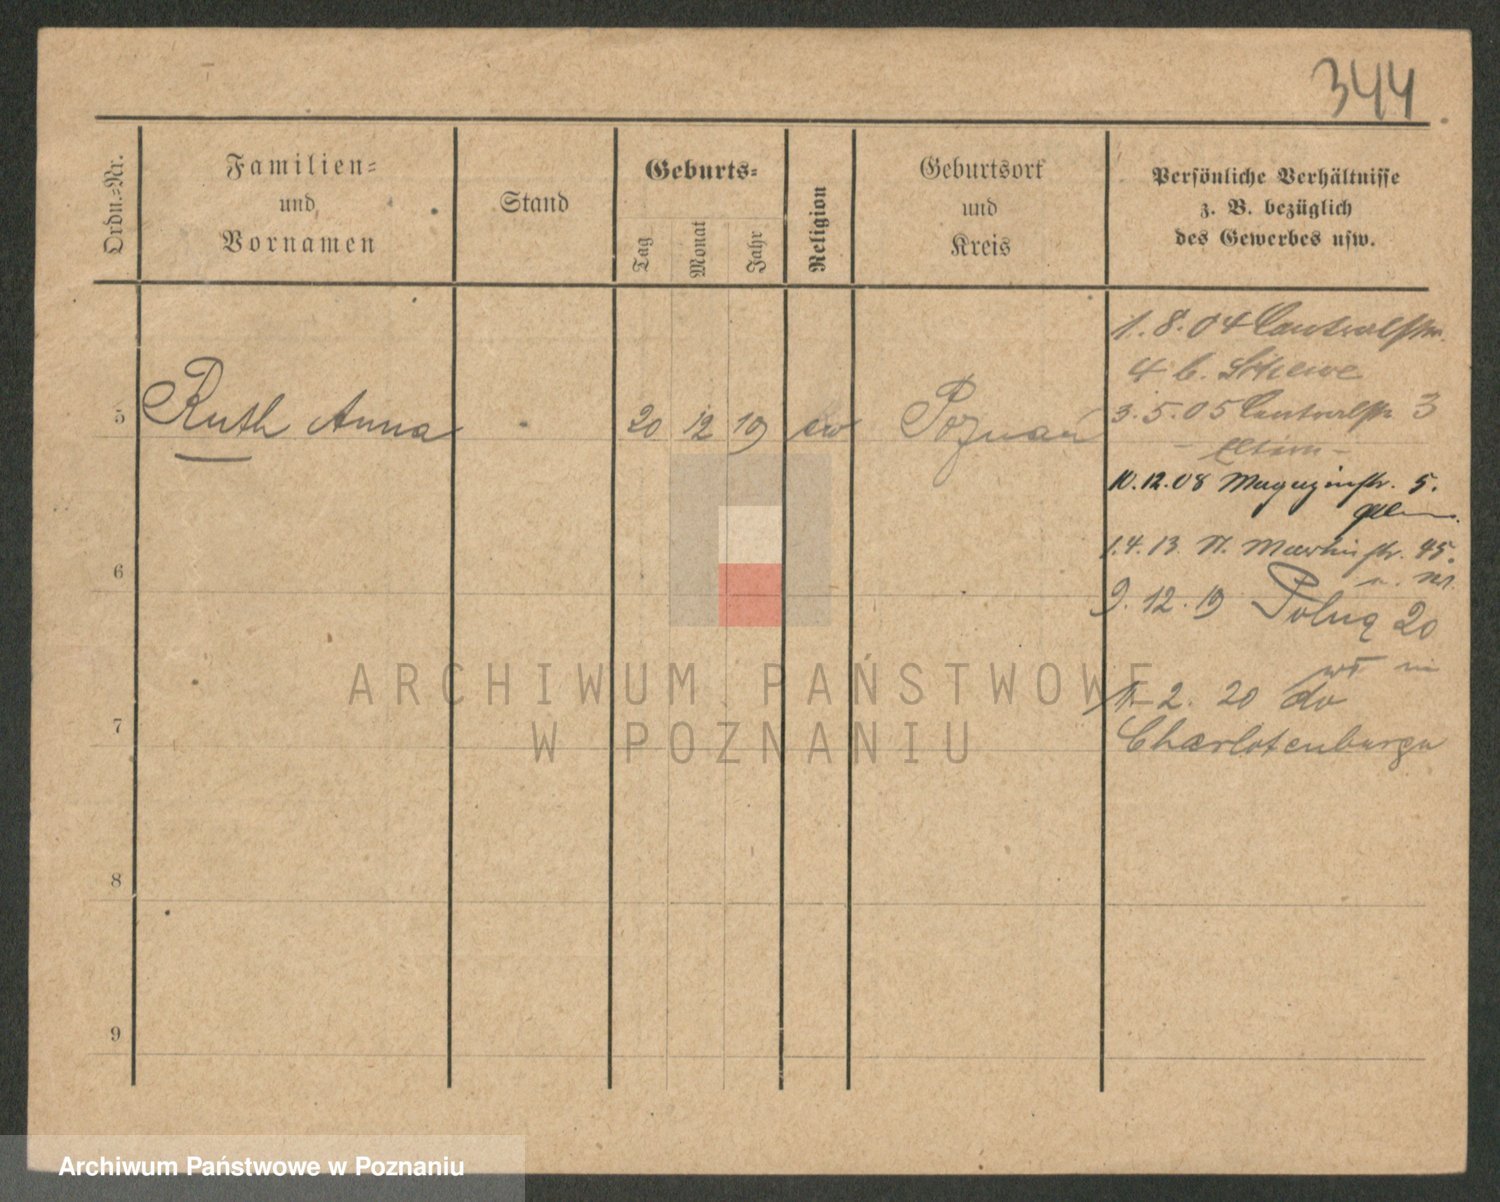 344
Ordn.-Nr.
Familien-
und
Vornamen
Stand
Geburts-
Tag
Monat
Jahr
Religion
Geburtsort
und
Kreis
Persönliche Verhältnisse
z. B. bezüglich
des Gewerbes usw.
5 Ruth Anna 20 12 19 ew Poznań
1.8.04 Centralstr.
4 b.
3.5.05 Centralstr 3
10.12.08 Magazinstr. 5.
1.4.13. St. Martinstr. 45.
9.12.19 20
1-2.20 do
Charlotenburga
6
7
8
9
ARCHIWUM PAŃSTWOWE
W POZNANIU
Archiwum Państwowe w Poznaniu